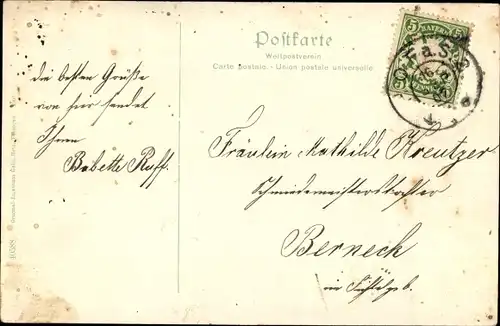 Postkarte
Weltpostverein
Carte postale - Union postale universelle
5 BAYERN 5
PFENNIG
HOF a. S.
die besten Grüße
von hier sendet
Ihnen
Babette Ruff.
Fräulein Mathilde Kreutzer
Schmiedemeisterstochter
Berneck
im Fichtelgeb.